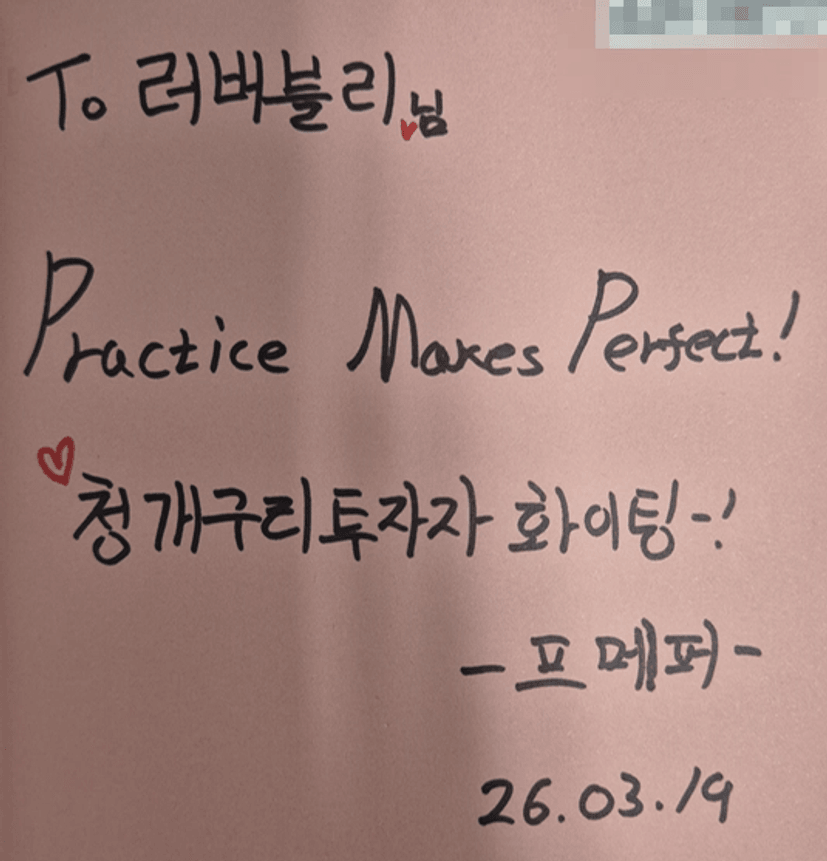 To 러버블리♥님
Practice Makes Perfect!
♡청개구리투자자 화이팅-!
- 프메퍼 -
26.03.19